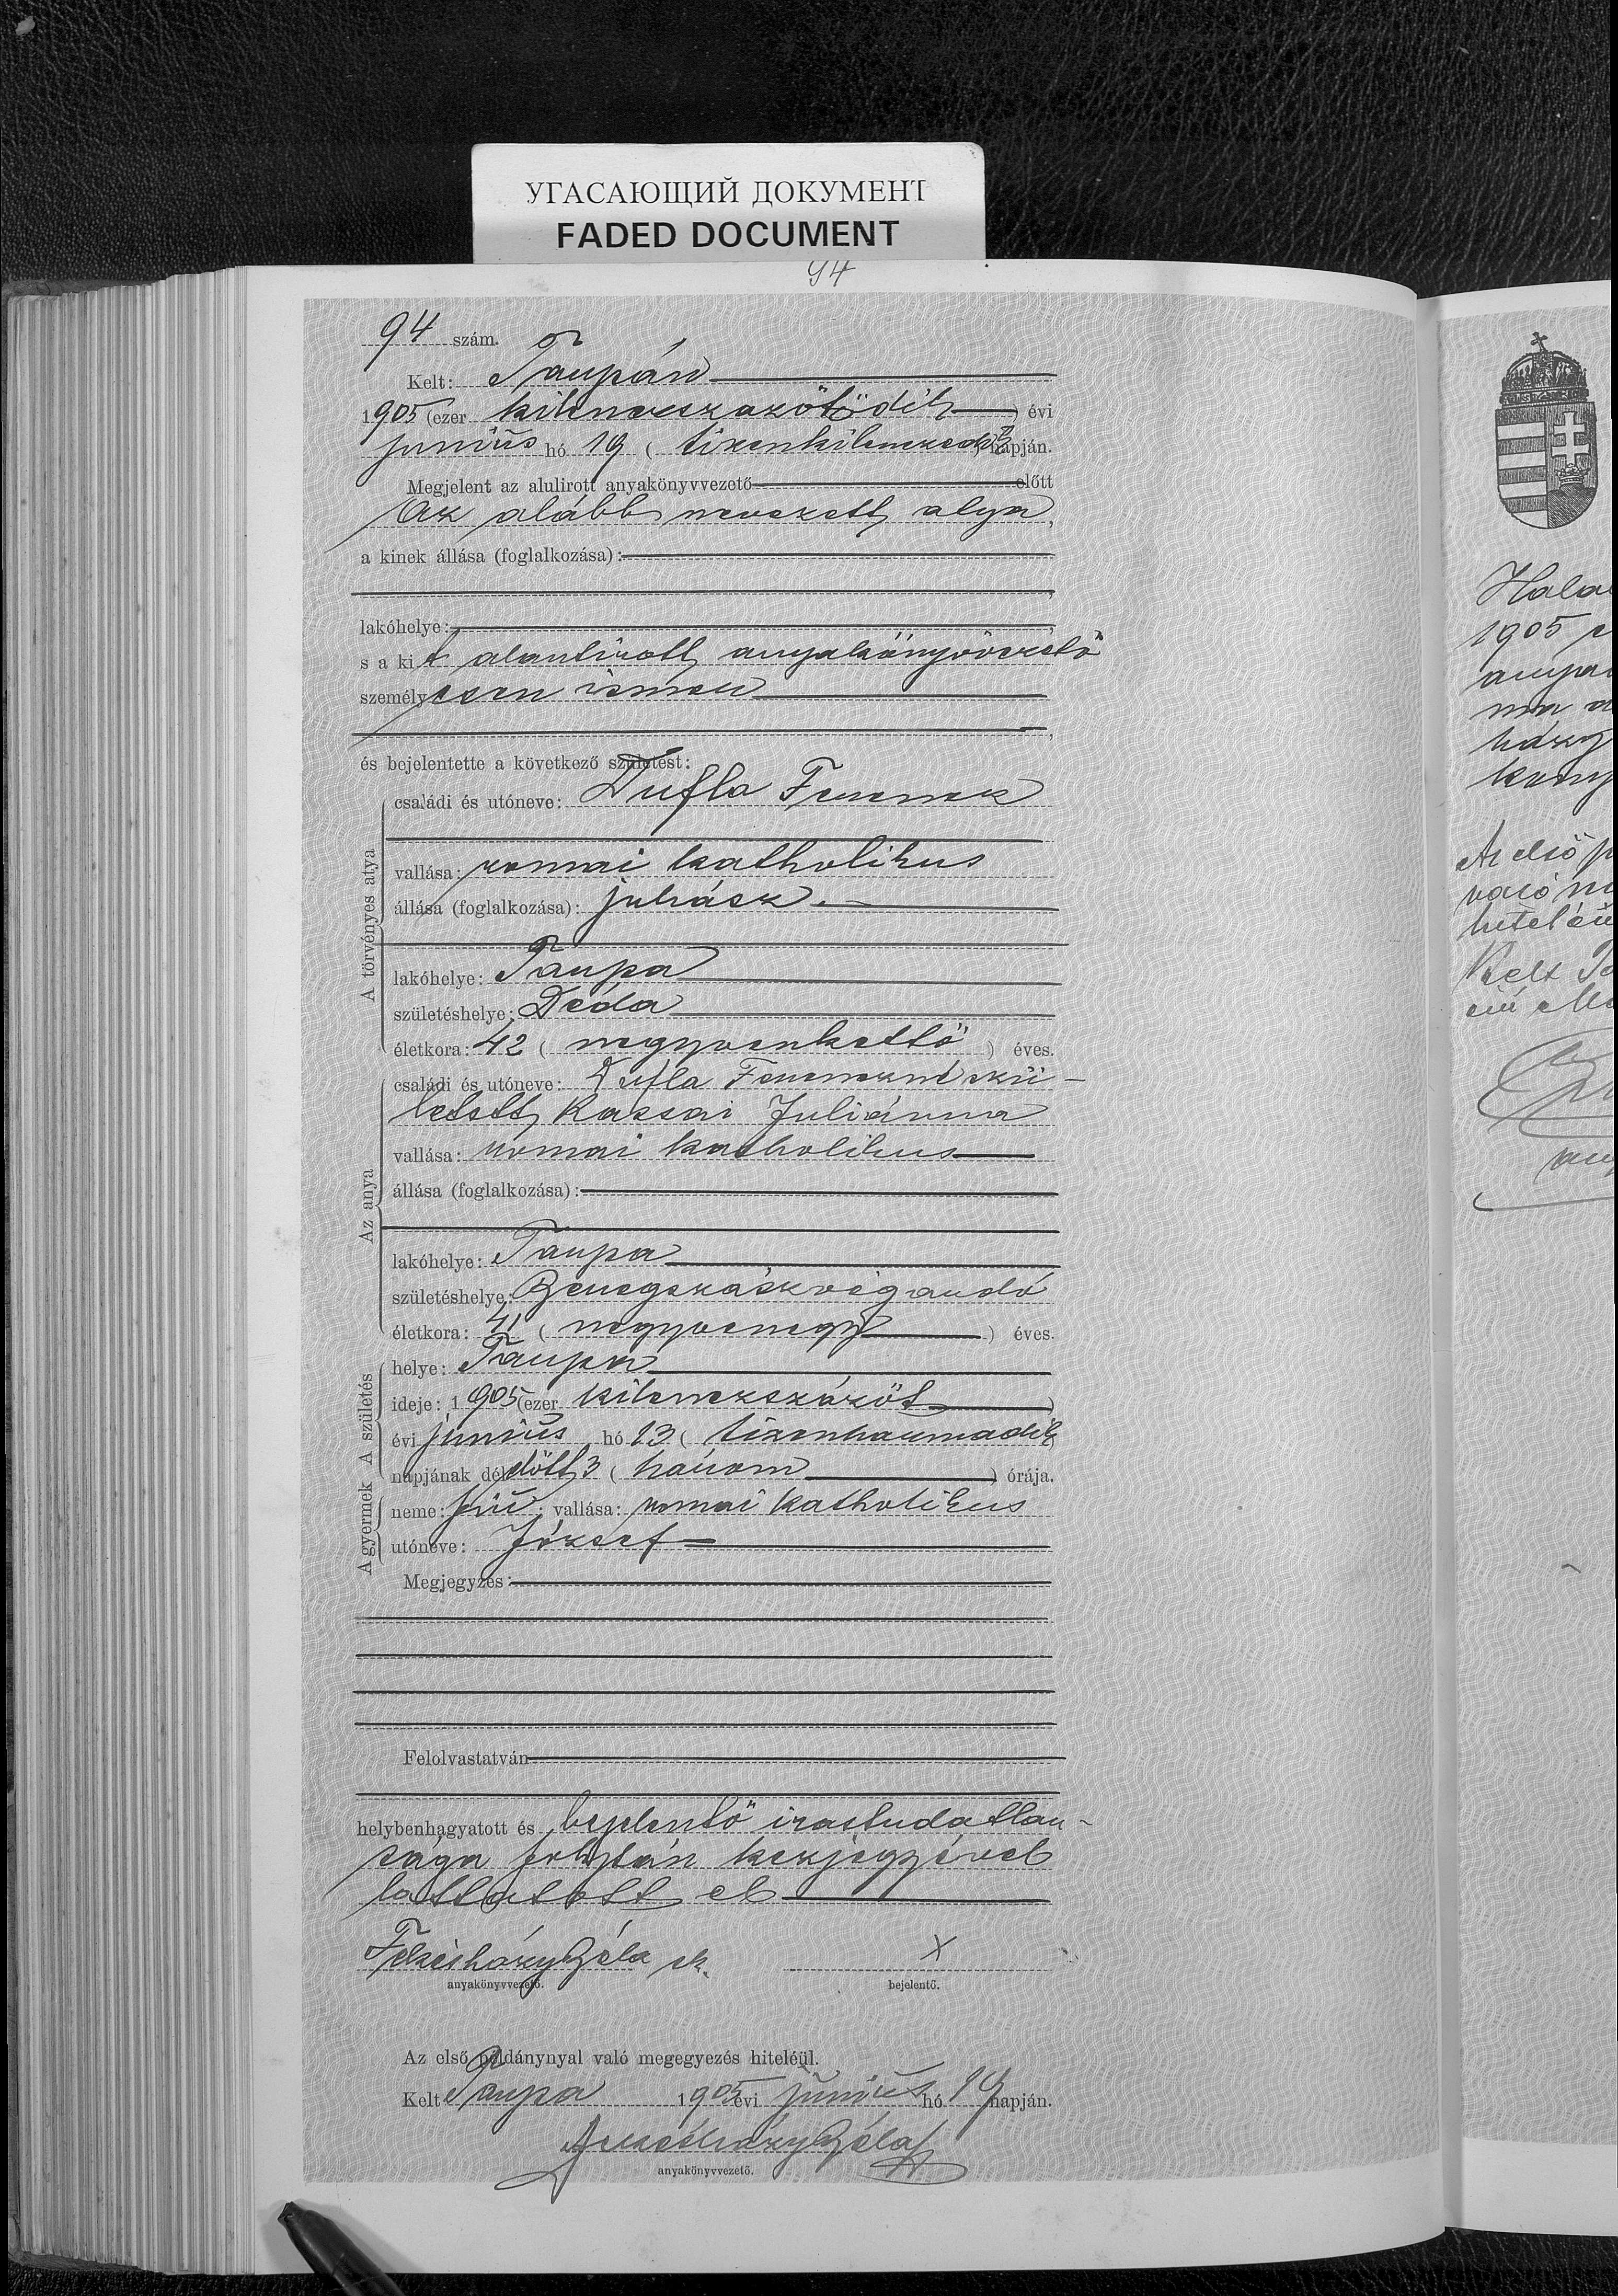 УГАСАЮЩИЙ ДОКУМЕНТ
FADED DOCUMENT
94
94 szám.
Kelt: Tarpán
1905 (ezer kilenczszázötödik) évi
junius hó 19 (tizenkilenczedik) napján.
Megjelent az alulirott anyakönyvvezető előtt
Az alább nevezett atya,
a kinek állása (foglalkozása):
lakóhelye:
s a kit alantirott anyakönyvvezető
személyesen ismer
és bejelentette a következő születést:
A törvényes atya
családi és utóneve: Dufla Ferencz
vallása: romai katholikus
állása (foglalkozása): juhász.
lakóhelye: Tarpa
születéshelye: Déda
életkora: 42 (negyvenkettő) éves.
Az anya
családi és utóneve: Dufla Ferenczné szü-
letett Kassai Juliánna
vallása: romai katholikus
állása (foglalkozása):
lakóhelye: Tarpa
születéshelye:
életkora: 41 (negyvenegy) éves.
A születés
helye: Tarpa
ideje: 1905 (ezer kilenczszázöt)
évi junius hó 13 (tizenharmadik)
napjának délelőtt 3 (három) órája.
A gyermek
neme: fiu; vallása: romai katholikus
utóneve: József
Megjegyzés:
Felolvastatván
helybenhagyatott és bejelentő irastudatlan-
sága folytán kezjegyével
láttatott el
Béla sk. X
anyakönyvvezető. bejelentő.
Az első példánynyal való megegyezés hiteléül.
Kelt Tarpa 1905 évi junius hó 19 napján.
Béla
anyakönyvvezető.
1905
Az első
Kelt